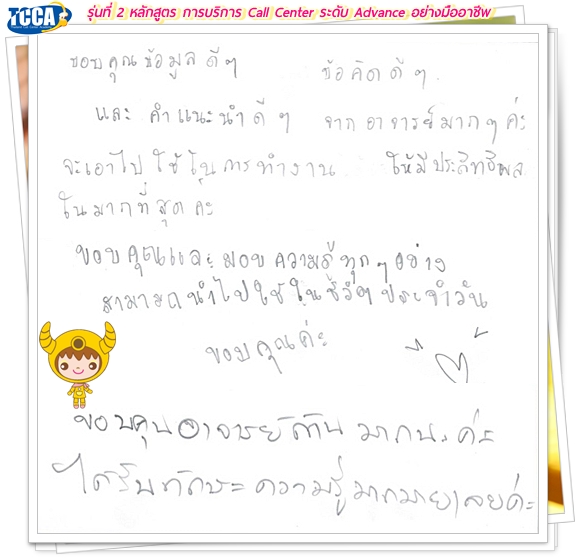 TCCA
รุ่นที่ 2 หลักสูตร การบริการ Call Center ระดับ Advance อย่างมืออาชีพ
ขอบคุณข้อมูลดีๆ ข้อคิดดีๆ
และ คำแนะนำดีๆ จากอาจารย์มากๆค่ะ
จะเอาไปใช้ในการทำงาน ให้มีประสิทธิผล
ในมากที่สุดค่ะ
ขอบคุณและมอบความรู้ทุกๆอย่าง
สามามถนำไปใช้ในชีวิตประจำวัน
ขอบคุณค่ะ
ขอบคุณอาจารย์ มากนะค่ะ
ได้รับทักษะความรู้มากมายเลยค่ะ